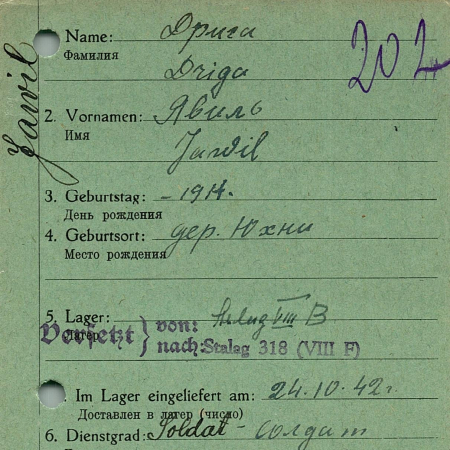 Name: Друга
Фамилия
Driga
202
2. Vornamen: Явиль
Имя
Jawil
Jawil
3. Geburtstag: - 1914.
День рождения
4. Geburtsort: дер. Юхни
Место рождения
5. Lager: VIII B
Лагерь
Versetzt } von:
nach: Stalag 318 (VIII F)
Im Lager eingeliefert am: 24.10.42г.
Доставлен в лагер (число)
6. Dienstgrad: Soldat - солдат